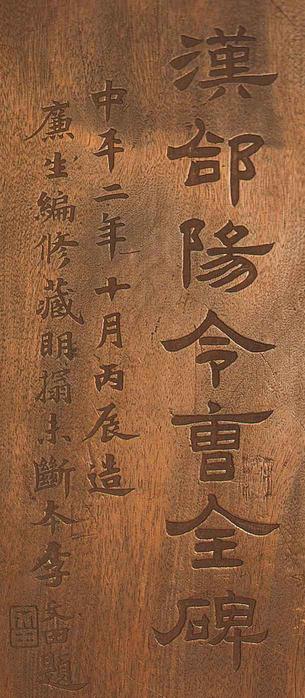 漢郃陽令曹全碑
中平二年十月丙辰造
廉生編修藏明搨未斷本李文田題